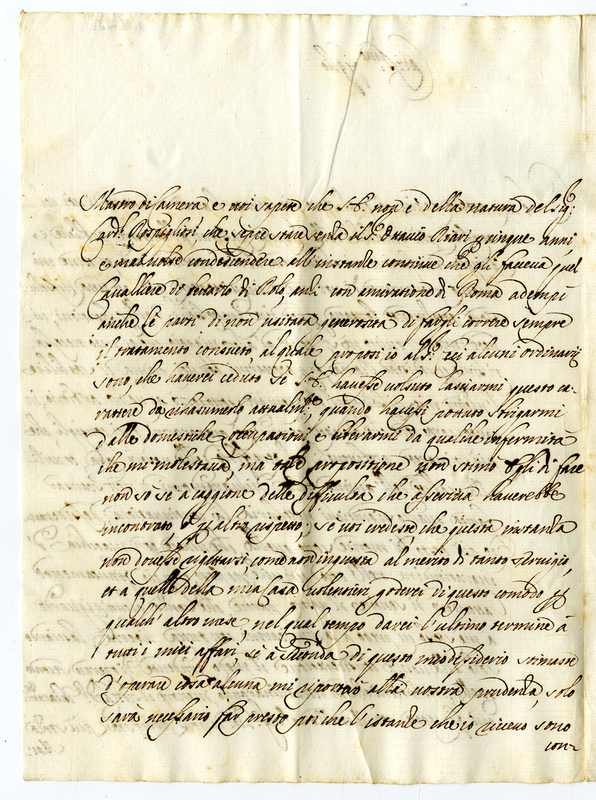 Mastro di Camera e voi sapete che S. E. non è della natura del Sig.r
Card. Rospigliosi che seppe stare senza il S.r Ottavio Riari cinque anni,
e mai volse condescendere all'instanze continue che gli faceva quel
Cavalliere di ritrarlo di Polo, anzi con amiratione di Roma adempì
anche le parti di non usitata generosità di fargli correre sempre
il trattamento consueto, al quale proposi io al S.r alcuni ordinarij
sono, che haverei ceduto se S. E. havesse voluto lasciarmi questo ca-
rattere da riassumerlo attualm.te, quando havessi pottuto strigarmi
dalle domestiche occupationi, e liberarmi da qualche infermità
che mi molestava, mà tale propositione non stimò egli di fare
non sò se a caggione delle difficultà che asseriva haverebbe
incontrato, ò p altro rispetto, se voi credeste, che questa instanza
non dovesse rigettarsi come non ingiusta al merito di tanto servigio,
et a quelle della mia Casa volentieri goderei di questo comodo p
qualch'altro mese, nel qual tempo darei l'ultimo termine à
tutti i miei affari, se à seconda di questo mio desiderio stimaste
d'operare cosa alcuna mi riporto alla vostra prudenza, solo
sarà necessario far presto poi che l'istanze che io ricevo sono
con-